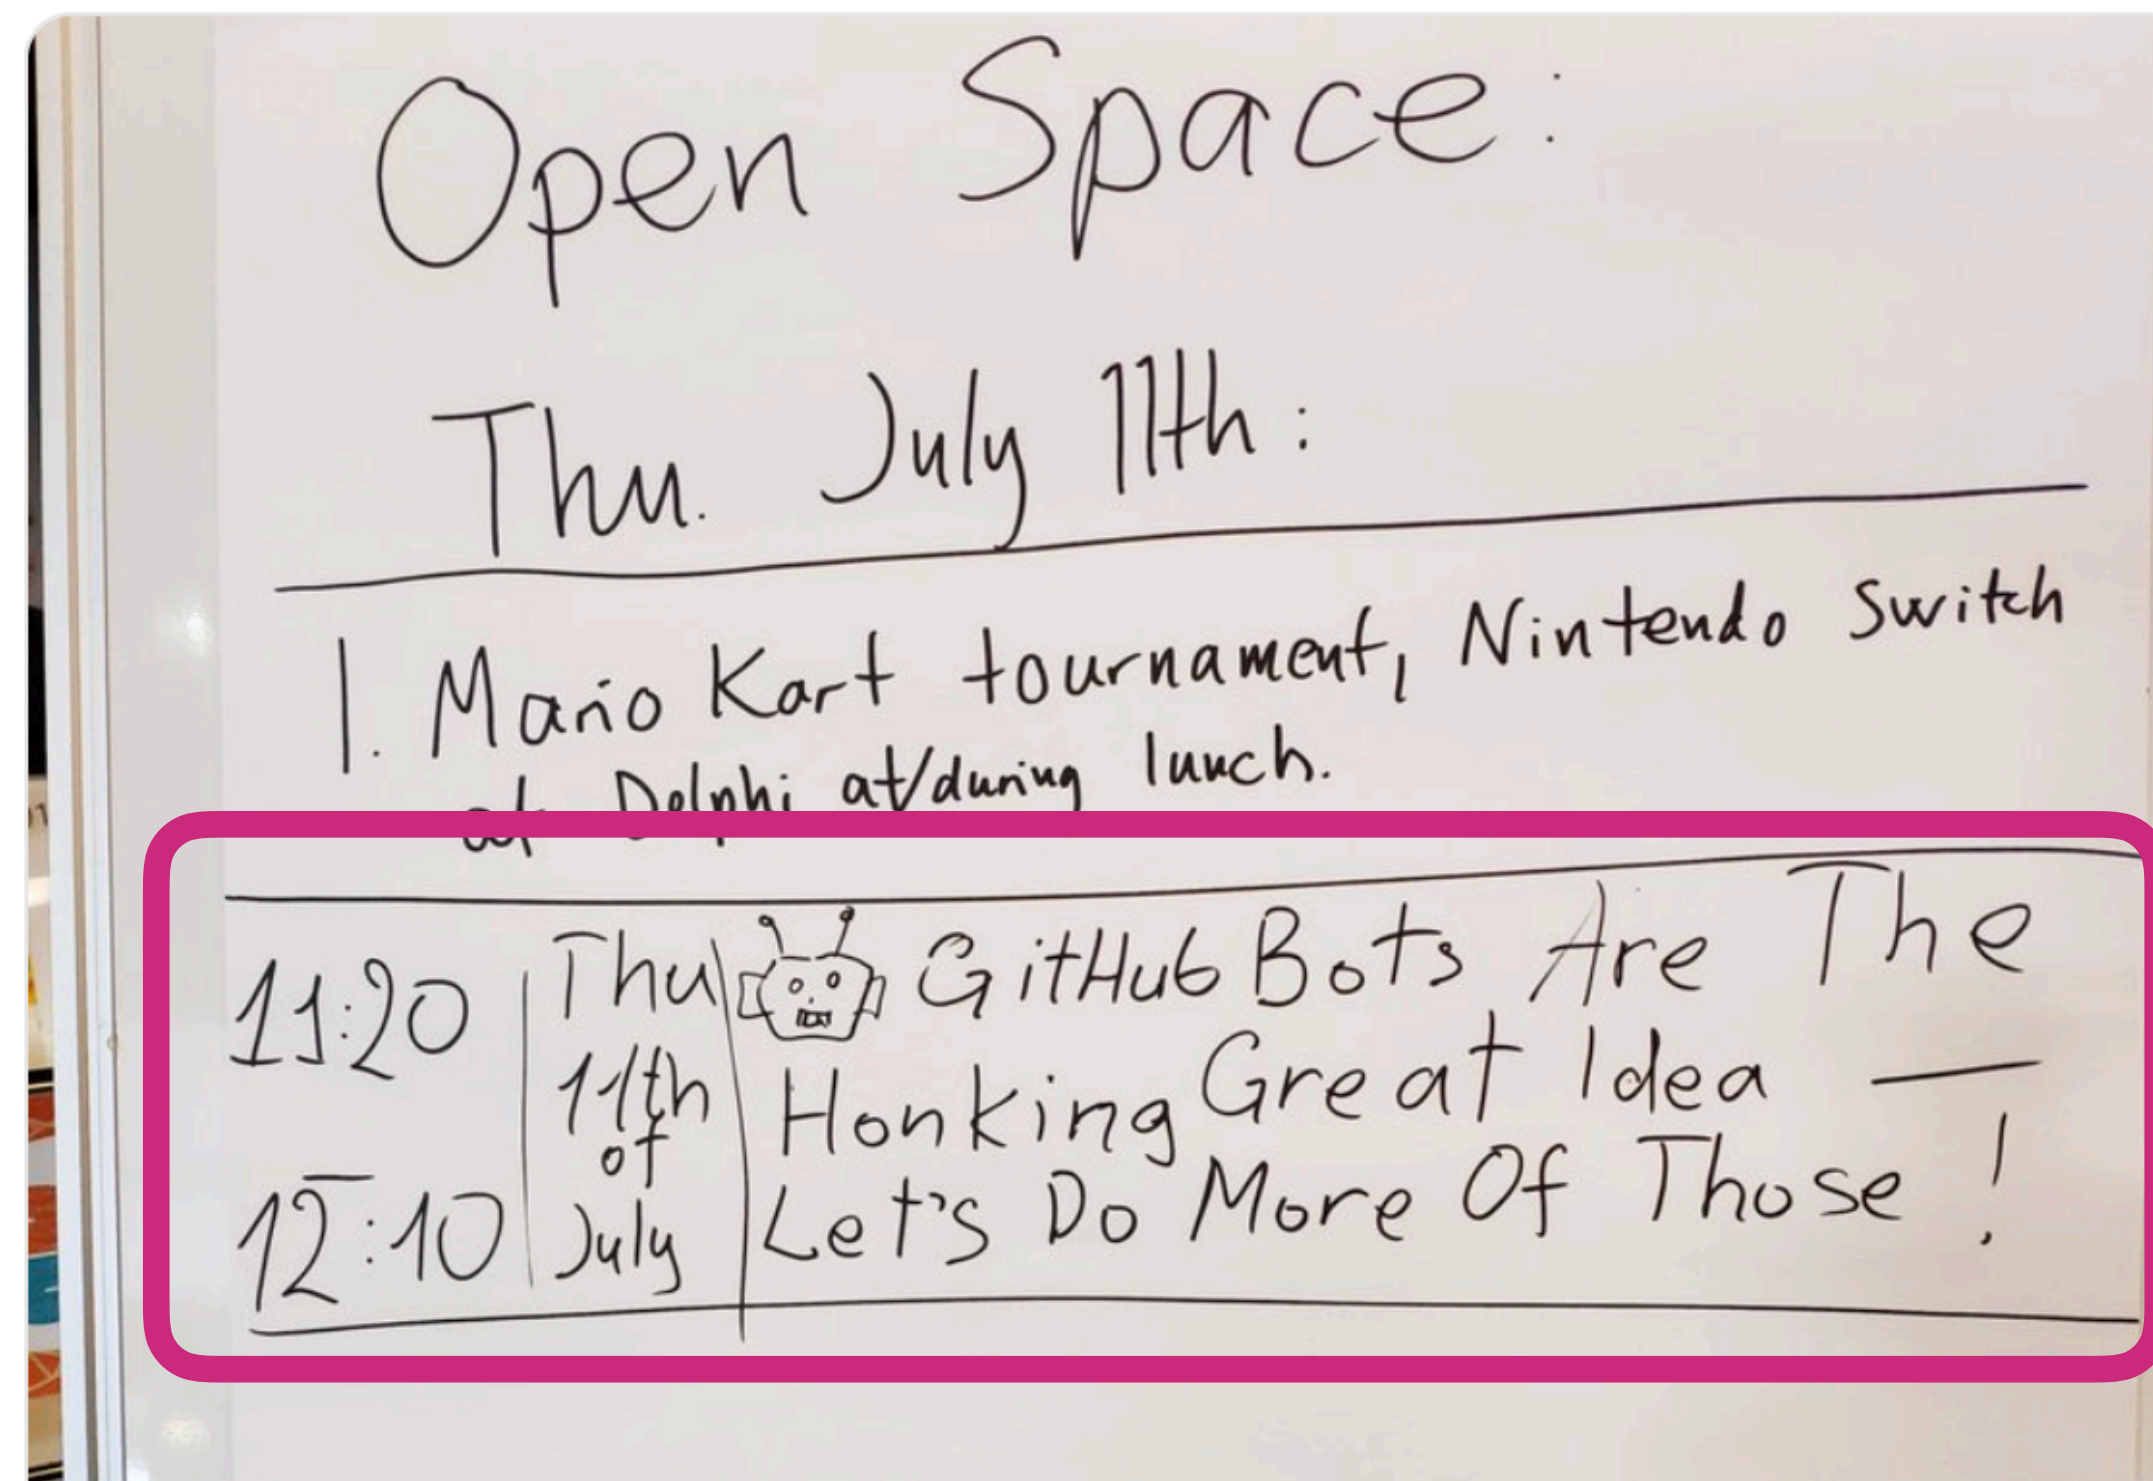 Open Space:
Thu. July 11th:
1. Mario Kart tournament, Nintendo Switch
at Delphi at/during lunch.
11:20
12:10
Thu
11th
of
July
GitHub Bots Are The
Honking Great Idea —
Let's Do More Of Those!